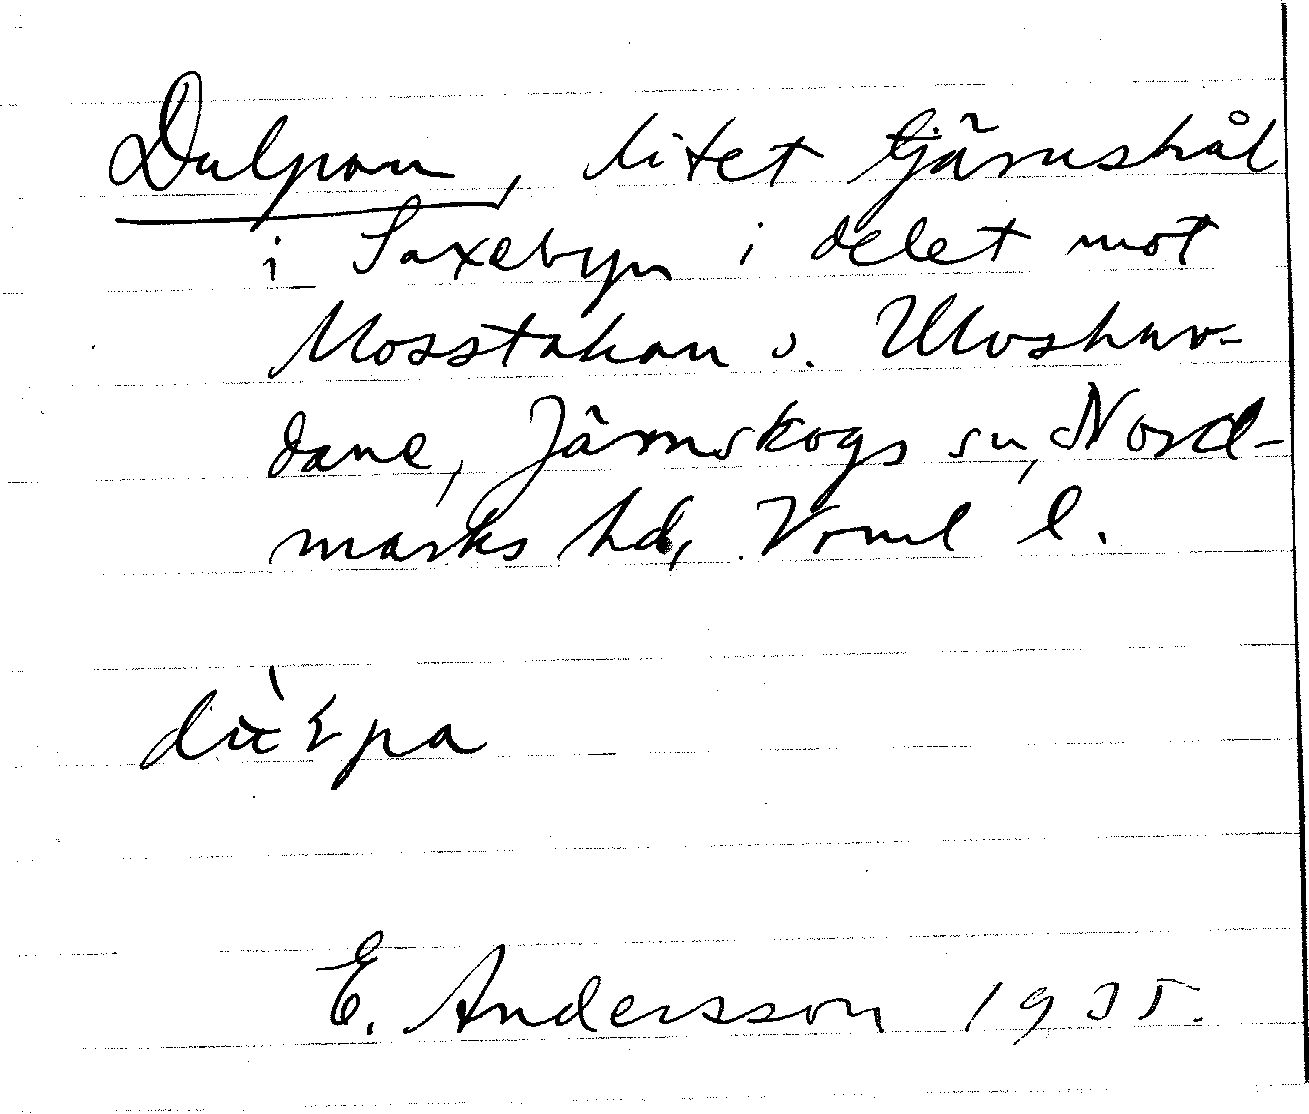 Dulpan, litet tjärnshål
i Saxebyn i delet mot
Mosstakan o.
dane, Järnskogs sn, Nord-
marks hd, Vrml l.
E. Andersson 1935.